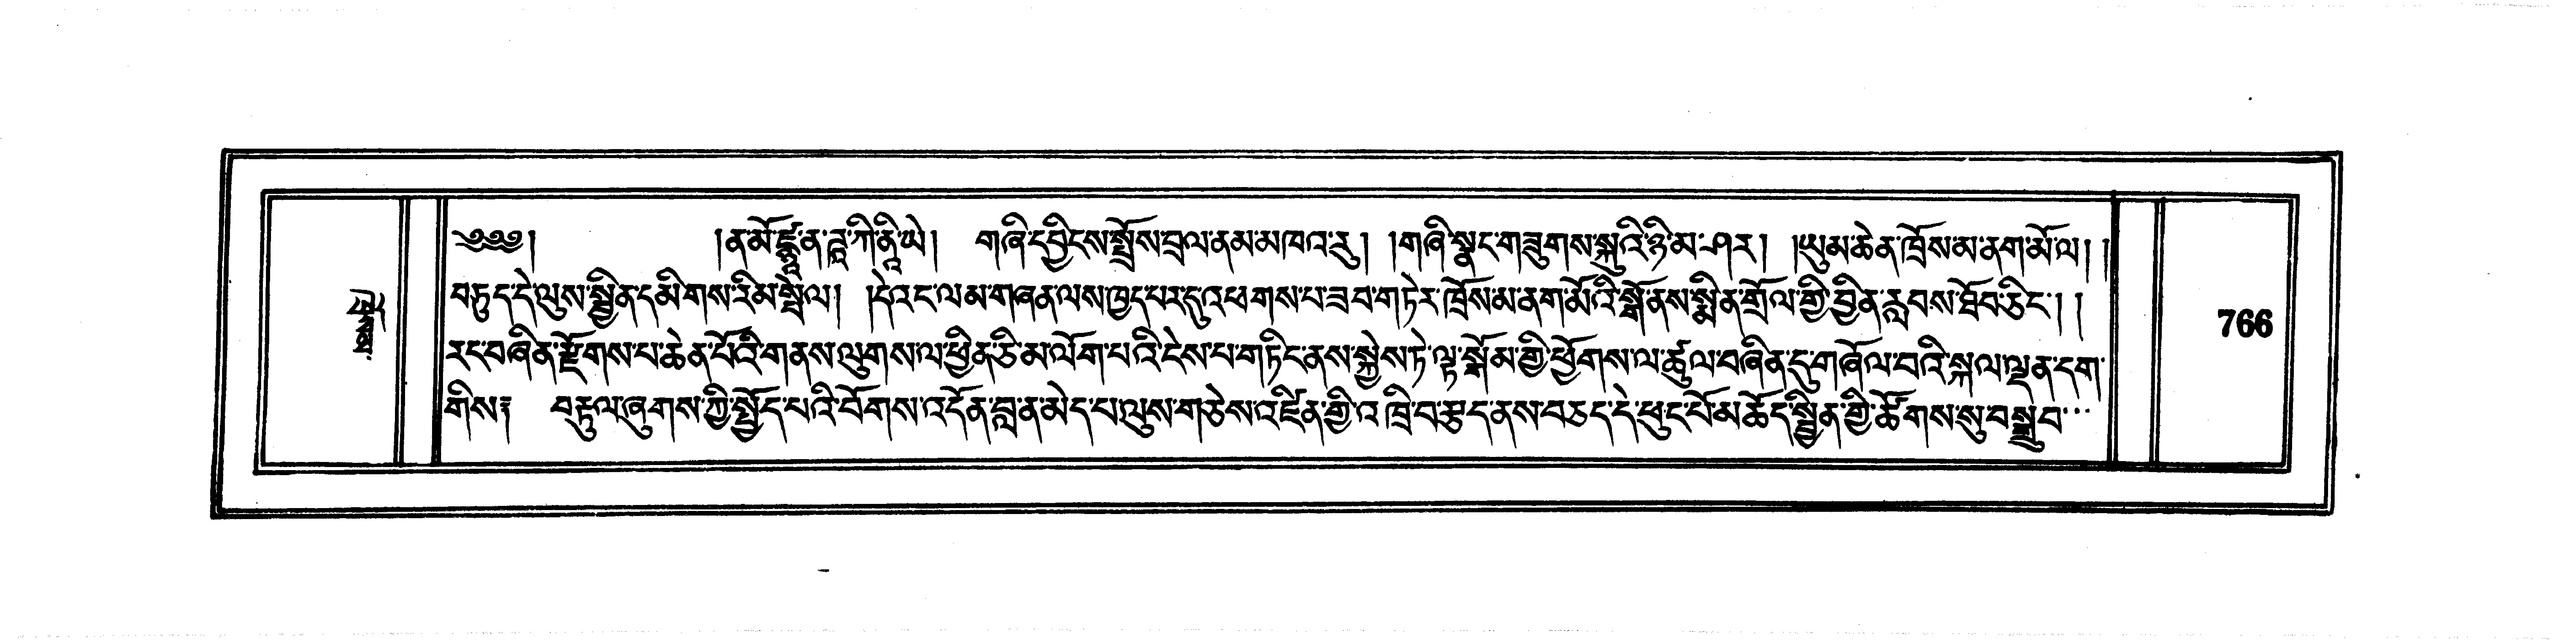 ༄༅༅། །ན་མོ་ཛྙཱ་ན་ཌཱ་ཀི་ནཱི་ཡེ། གཞི་དབྱིངས་སྤྲོས་བྲལ་ནམ་མཁའ་རུ། །གཞི་སྣང་གཟུགས་སྐུའི་ཉི་མ་ཤར། །ཡུམ་ཆེན་ཁྲོས་མ་ནག་མོ་ལ། །
བཏུད་དེ་ལུས་སྦྱིན་དམིགས་རིམ་སྤེལ། །དེ་འང་ལམ་གཞན་ལས་ཁྱད་པར་དུ་འཕགས་པ་ཟབ་གཏེར་ཁྲོས་མ་ནག་མོའི་སྒོ་ནས་སྨིན་གྲོལ་གྱི་བྱིན་རླབས་ཐོབ་ཅིང་། །
རང་བཞིན་རྫོགས་པ་ཆེན་པོའི་གནས་ལུགས་ལ་ཕྱིན་ཅི་མ་ལོག་པའི་ངེས་པ་གཏིང་ནས་སྐྱེས་ཏེ་ལྟ་སྒོམ་གྱི་ཕྱོགས་ལ་ཚུལ་བཞིན་དུ་གཞོལ་བའི་སྐལ་ལྡན་དག་
གིས༔ བརྟུལ་ཞུགས་ཀྱི་སྤྱོད་པའི་བོགས་འདོན་བླ་ན་མེད་པ་ལུས་གཅེས་འཛིན་གྱི་འཁྲི་བ་རྩད་ནས་བཅད་དེ་ཕུང་པོ་མཆོད་སྦྱིན་གྱི་ཚོགས་སུ་བསྒྲུབ་་་
766